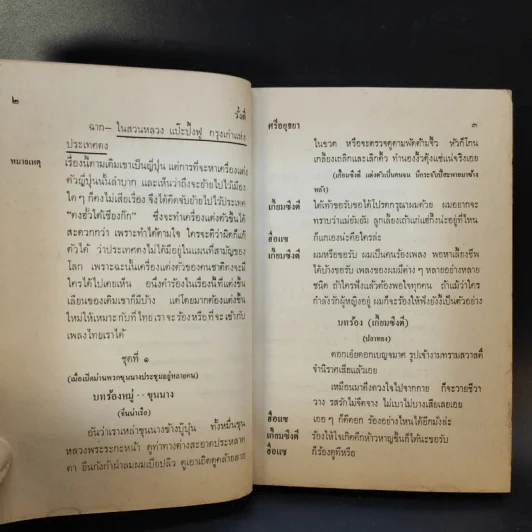 ๒
วั้งตี่
ฉาก— ในสวนหลวง แป๊ะปั้งฟู กรุงเก่าแห่ง
ประเทศตง
หมายเหตุ เรื่องนี้ตามเดิมเขาเป็นญี่ปุ่น แต่การที่จะหาเครื่องแต่ง
ตัวญี่ปุ่นนั้นลำบาก และเห็นว่าถึงจะย้ายไปไว้เมือง
ใด ๆ ก็คงไม่เสียเรื่อง จึงได้คิดจับย้ายไปไว้ประเทศ
ซึ่งจะทำเครื่องแต่งตัวขึ้นได้
สะดวกกว่า เพราะทำได้ตามใจ ใครจะติว่าผิดก็แก้
ตัวได้ ว่าประเทศตงไม่ได้มีอยู่ในแผนที่สามัญของ
โลก เพราะฉะนั้นเครื่องแต่งตัวของคนชาติตงจะมี
ใครได้ไปเคยเห็น อนึ่งคำร้องในเรื่องนี้ที่แต่งขึ้น
เลียนของเดิมเขาก็มีบ้าง แต่โดยมากต้องแต่งขึ้น
ใหม่ให้เหมาะกับที่ไทยเราจะร้องหรือที่จะเข้ากับ
เพลงไทยเราได้
ชุดที่ ๑
(เมื่อเปิดม่านพวกขุนนางประชุมอยู่หลายคน)
บทร้องหมู่ - ขุนนาง
(จีนนำเรือ)
อันว่าเราเหล่าขุนนางข้างบู๊บุ๋น ทั้งหมื่นขุน
หลวงพระระกะหน้า ดูท่าทางต่างสะอาดประหลาด
ตา ยืนกังก้าผ่าลมผมเปียปลิว ดูเอาเถิดดูคล้ายลาย
ศรีอยุธยา ๓
ในขวด หรือจะตรวจดูตามพัดด้ามจิ้ว หัวก็โกน
เกลี้ยงเถลิกและเลิกคิ้ว ทำนองงิ้วตุ้งแช่แน่จริงเอย
(เกี้ยมซึงตี่ แต่งตัวเป็นคนจน มีกระจับปี่สะพายมาข้าง
หลัง)
เกี้ยมซึงตี่ ใต้เท้าขอรับขอได้โปรดกรุณาผมด้วย ผมอยากจะ
ทราบว่าแม่ยัมยัม ลูกเลี้ยงเถ้าแก่แฮ้กึ้งน่ะอยู่ที่ไหน
ฮ้อแซ ก็แกเองน่ะคือใครล่ะ
เกี้ยมซึงตี่ ผมหรือขอรับ ผมเป็นคนร้องเพลง พอหาเลี้ยงชีพ
ได้บ้างขอรับ เพลงของผมมีต่าง ๆ หลายอย่างหลาย
ชนิด ถ้าใครฟังแล้วต้องพอใจทุกคน ถ้าแม้ว่าใคร
กำลังรักผู้หญิงอยู่ ผมก็จะร้องให้ฟังยังงี้เป็นตัวอย่าง
บทร้อง (เกี้ยมซึงตี่)
(ปลาทอง)
ดอกเอ๋ยดอกเบญจมาศ รูปเจ้างามทรามสวาสดิ์
จำนิราศเสียแล้วเอย
เหมือนมาดึงดวงใจไปจากกาย ก็จะวายชีวา
วาง รสรักไม่จืดจาง ไม่เบาไม่บางเสียเลยเอย
ฮ้อแซ เออ ๆ ก็ดีดอก ร้องอย่างไหนได้อีกมั่งล่ะ
เกี้ยมซึงตี่ ร้องให้ใจเกิดคึกห้าวหาญขึ้นก็ได้นะขอรับ
ฮ้อแซ ก็ร้องดูทีหรือ